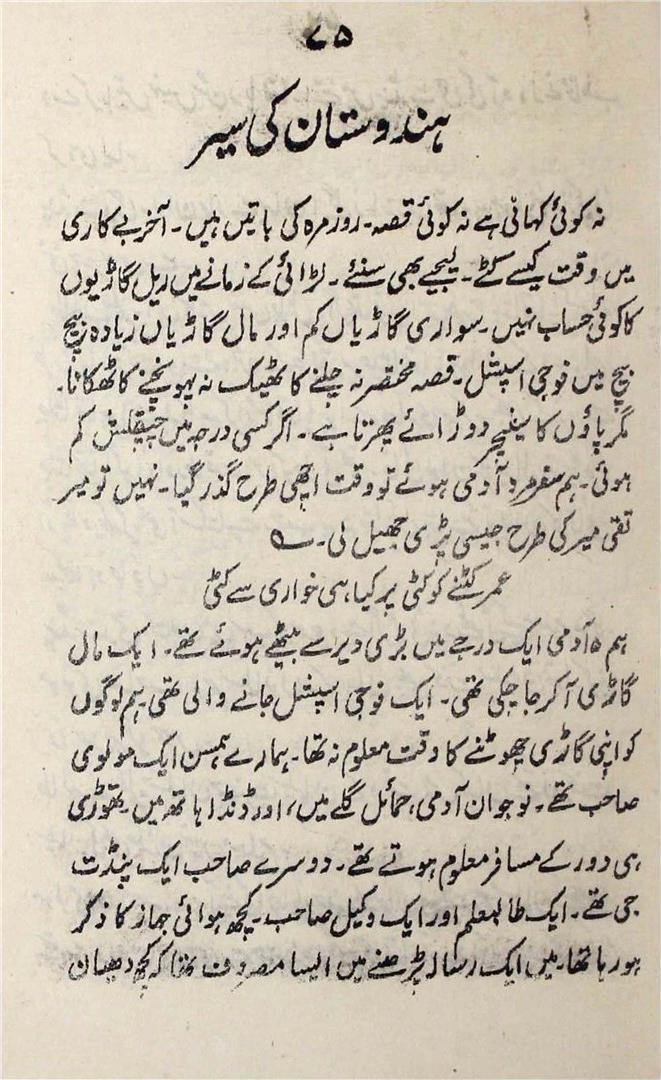 ۷۵
ہندوستان کی سیر
نہ کوئی کہانی ہے نہ کوئی قصہ۔ روزمرہ کی باتیں ہیں۔ آخر بے کاری
میں وقت کیسے کٹے۔ لیجیے بھی سنئے۔ لڑائی کے زمانے میں ریل گاڑیوں
کا کوئی حساب نہیں۔ سواری گاڑیاں کم اور مال گاڑیاں زیادہ بیچ
بیچ میں فوجی اسپیشل۔ قصہ مختصر نہ چلنے کا ٹھیک نہ پہونچنے کا ٹھکانا۔
مگر پاؤں کا سنیچر دوڑائے پھرتا ہے۔ اگر کسی درجہ میں چپقلش کم
ہوئی۔ ہم سفر مرد آدمی ہوئے تو وقت اچھی طرح گذر گیا۔ نہیں تو میر
تقی میر کی طرح جیسی پڑی جھیل لی۔ ؎
عمر کٹنے کو کٹی پر کیا ہی خواری سے کٹی
ہم ۵ آدمی ایک درجے میں بڑی دیر سے بیٹھے ہوئے تھے۔ ایک مال
گاڑی آ کر جا چکی تھی۔ ایک فوجی اسپیشل جانے والی تھی۔ ہم لوگوں
کو اپنی گاڑی چھوٹنے کا وقت معلوم نہ تھا۔ ہمارے ہمسن ایک مولوی
صاحب تھے۔ نوجوان آدمی، حمائل گلے میں، اور ڈنڈا ہاتھ میں۔ تھوڑی
ہی دور کے مسافر معلوم ہوتے تھے۔ دوسرے صاحب ایک پنڈت
جی تھے۔ ایک طالبعلم اور ایک وکیل صاحب۔ کچھ ہوائی جہاز کا ذکر
ہو رہا تھا۔ میں ایک رسالہ پڑھنے میں ایسا مصروف تھا کہ کچھ دھیان